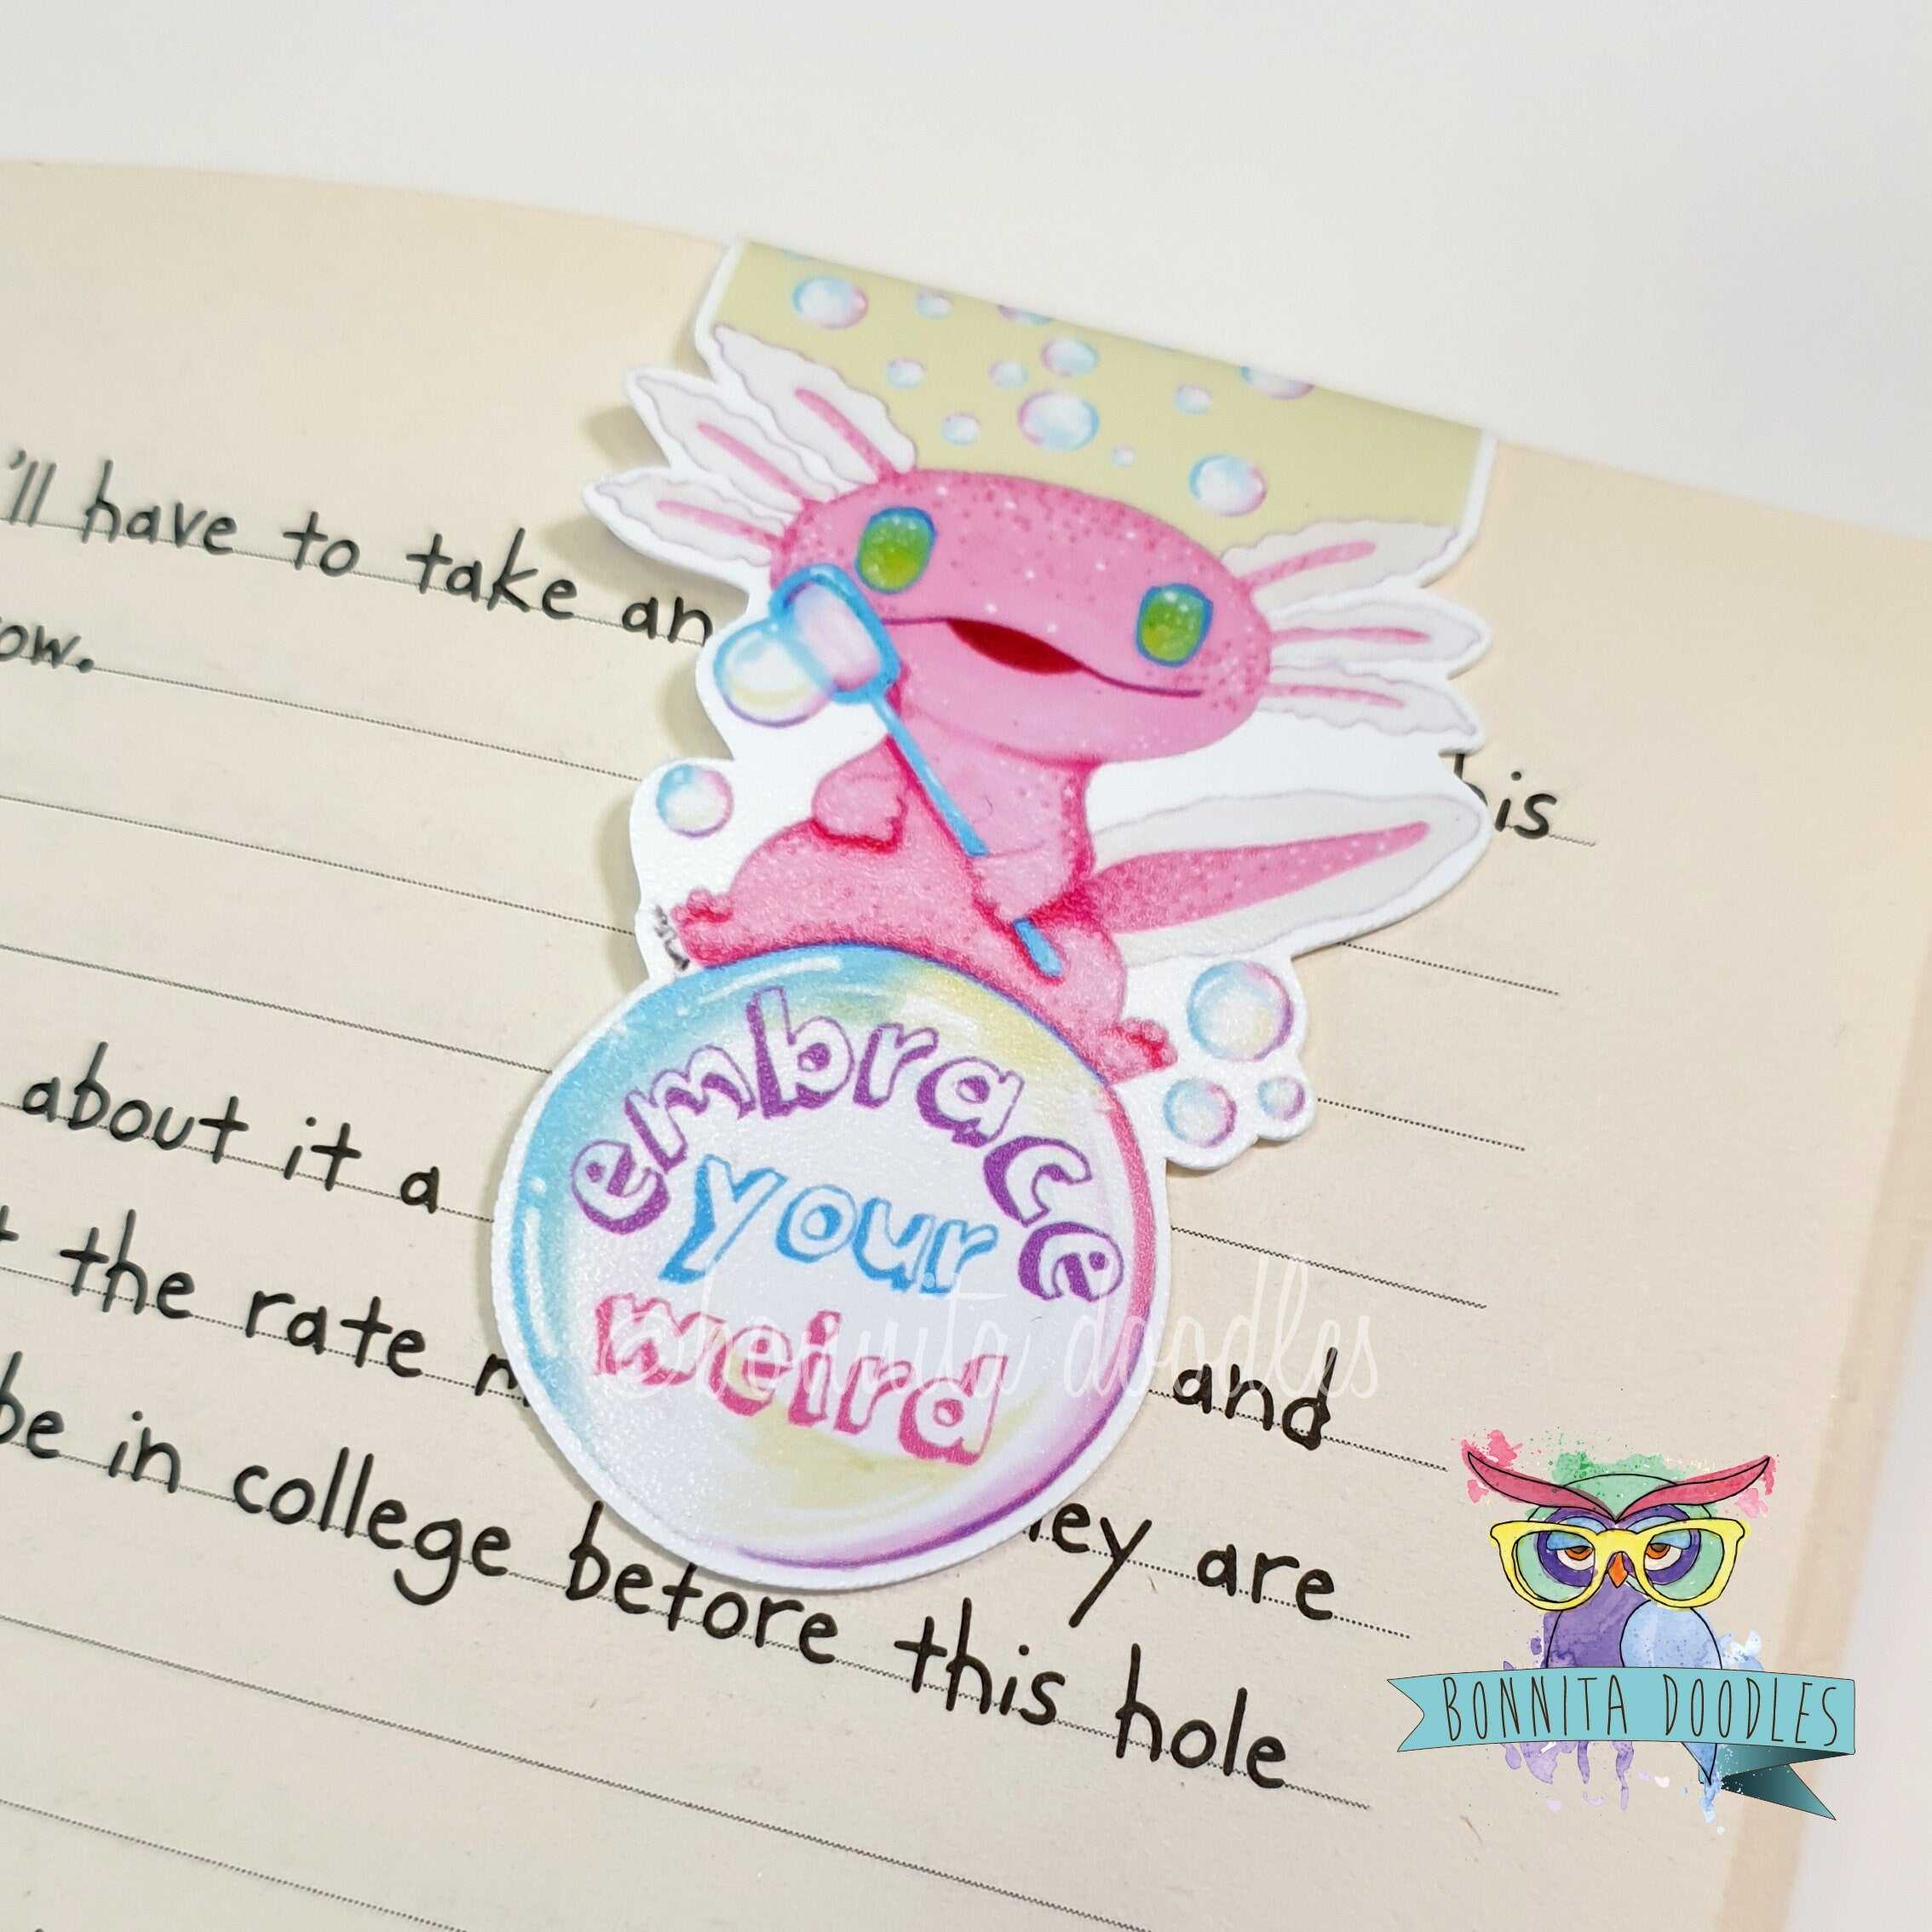 'll have to take an
ow.
is
embrace
your
weird
@bonnita doodles
about it a
the rate
and
be in college before they are
this hole
BONNITA DOODLES